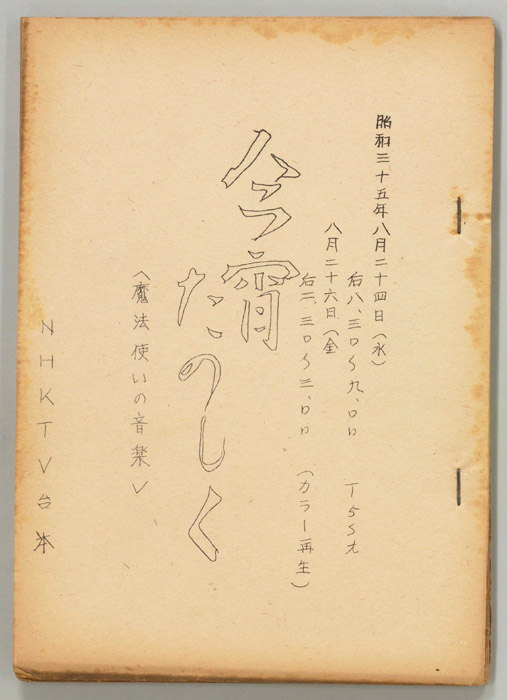 昭和三十五年八月二十四日(水)
后八、三〇〜九、〇〇
八月二十六日(金
后二、三〇〜三、〇〇 (カラー再生)
今宵
たのしく
〈魔法使いの音楽〉
NHKTV台本